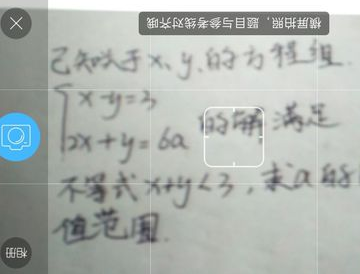 横屏拍照，题目与参考线对齐哦
已知关于x、y的方程组
x-y=3
2x+y=6a 的解满足
不等式x+y<3，求a的
值范围.
相册